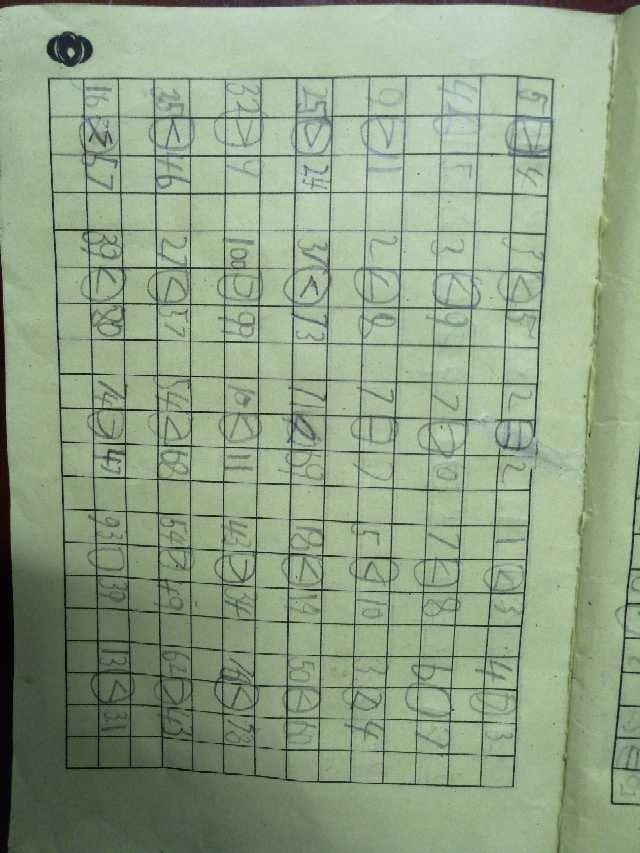 5 > 4 3 < 5 2 = 2 1 < 3 4 > 3
4 < 5 3 < 9 7 > 0 7 < 8 6 7
9 > 2 < 8 7 = 7 5 < 10 3 < 4
25 > 24 37 < 73 71 69 18 < 19 50 < 60
32 > 100 > 99 10 < 11 43 > 34 76 < 78
35 < 46 27 < 57 54 < 68 54 > 49 63
16 < 67 39 < 80 74 > 47 93 39 13 < 31